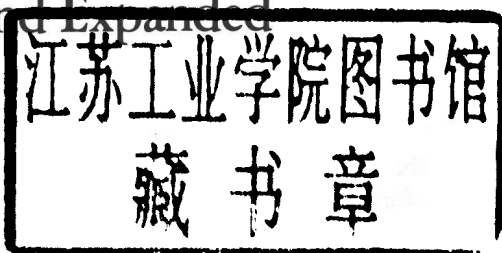 nd Expanded
江苏工业学院图书馆
藏书章